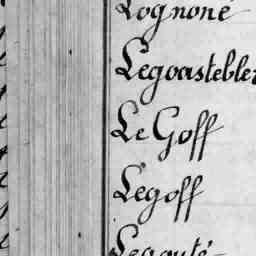 Lognoné
Legoastebler
Le Goff
Legoff
Legouté